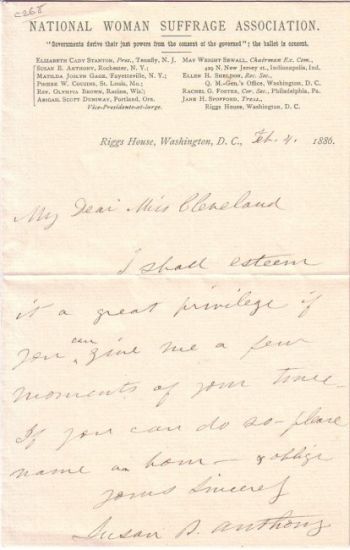 c268
NATIONAL WOMAN SUFFRAGE ASSOCIATION.
"Governments derive their just powers from the consent of the governed"; the ballot is consent.
ELIZABETH CADY STANTON, Pres., Tenafly, N. J.
SUSAN B. ANTHONY, Rochester, N. Y.;
MATILDA JOSLYN GAGE, Fayetteville, N. Y.;
PHOEBE W. COUZINS, St. Louis, Mo.;
REV. OLYMPIA BROWN, Racine, Wis.;
ABIGAIL SCOTT DUNIWAY, Portland, Orn.
Vice-Presidents-at-large.
MAY WRIGHT SEWALL, Chairman Ex. Com.,
429 N. New Jersey st., Indianapolis, Ind.
ELLEN H. SHELDON, Rec. Sec.,
Q. M.-Gen's Office, Washington, D. C.
RACHEL G. FOSTER, Cor. Sec., Philadelphia, Pa.
JANE H. SPOFFORD, Treas.,
Riggs House, Washington, D. C.
Riggs House, Washington, D. C., Feb. 4. 1886.
My Dear Miss Cleveland
I shall esteem
it a great privilege if
you can give me a few
moments of your time—
If you can do so— please
name an hour— & oblige
Yours Sincerely
Susan B. Anthony